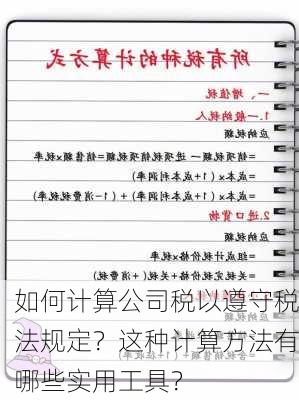 所有税种的计算方式
一、增值税
1.一般纳税人
应纳税额
=销项税额— 进项税额销项税额=销售额x税率
=成本x（1+成本利润率）
=成本x（1+成本利润率）÷（1-消费税税率）
2.进口货物
应纳税额
=组成计税价格x税率
=关税完税价格+关税（+消费税）
如何计算公司税以遵守税
法规定？这种计算方法有
哪些实用工具？